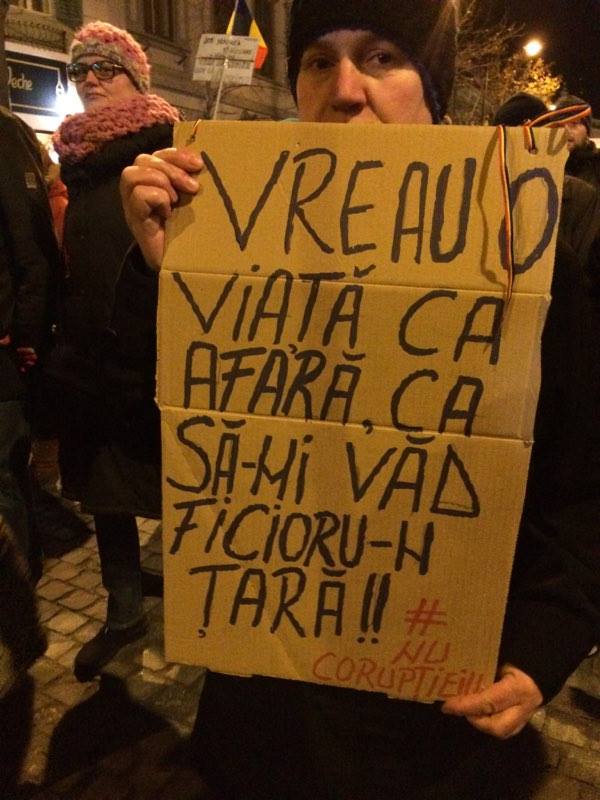 VREAU O
VIAȚĂ CA
AFARĂ, CA
SĂ-MI VĂD
FICIORU-N
ȚARĂ!!
#
NU
CORUPȚIEI!!